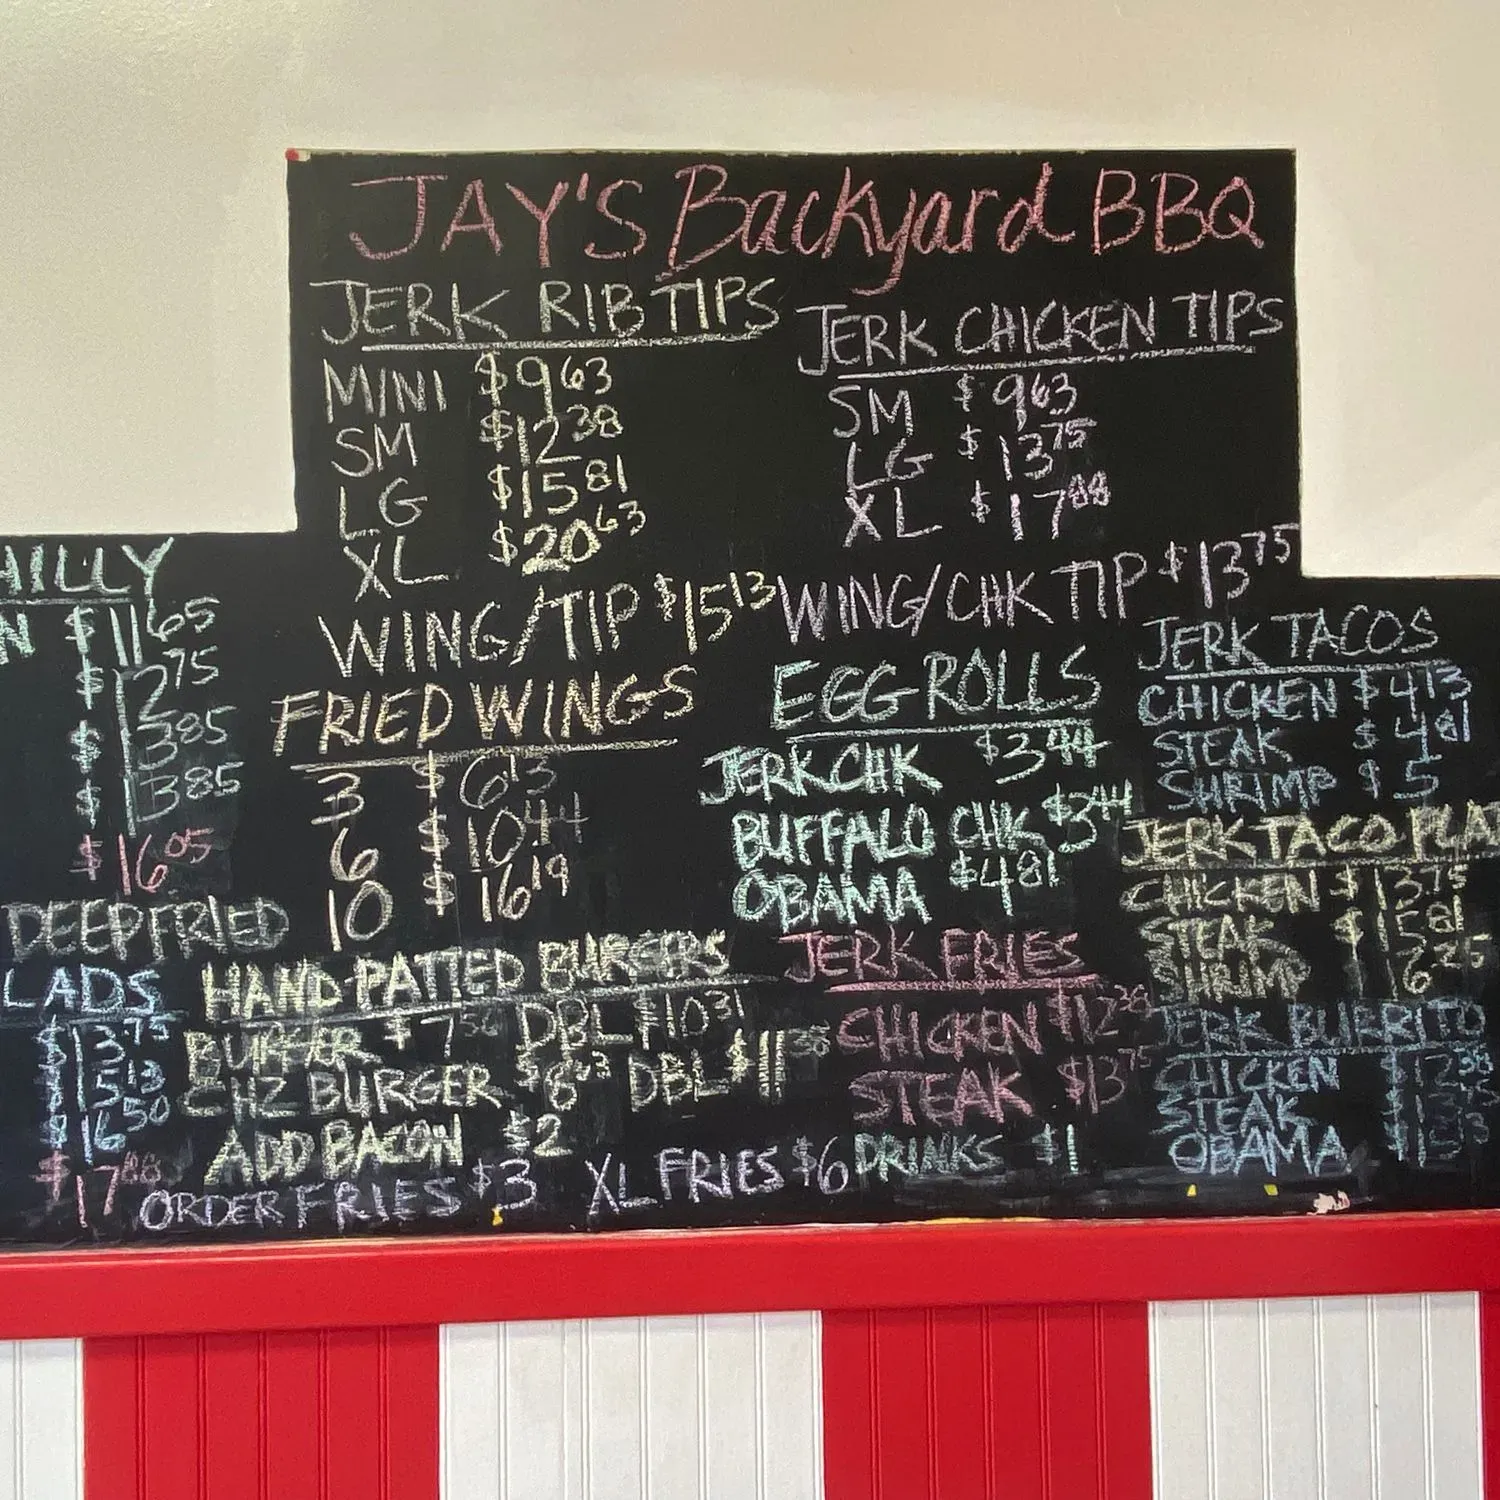 JAY'S Backyard BBQ
JERK RIB TIPS
MINI $9.63
SM $12.38
LG $15.81
XL $20.63
WING/TIP $15.13
JERK CHICKEN TIPS
SM $9.63
LG $13.75
XL $17.88
WING/CHK TIP $13.75
HILLY
N $11.65
$12.75
$13.85
$13.85
$16.05
DEEP FRIED
LADS
$13.75
$15.13
$16.50
$17.88
FRIED WINGS
3 $6.13
6 $10.44
10 $16.19
HAND-PATTED BURGERS
BURGER $7.56 DBL $10.31
CHZ BURGER $8.63 DBL
ADD BACON $2
ORDER FRIES $3 XL FRIES $6 DRINKS $1
EGG ROLLS
JERK CHK $3.44
BUFFALO CHK $3.44
OBAMA $4.81
JERK FRIES
CHICKEN $12.38
STEAK $13.75
JERK TACOS
CHICKEN $4.13
STEAK $4.81
SHRIMP $5
JERK TACO PLA
CHICKEN $13.75
STEAK $15.81
SHRIMP
JERK BURRITO
CHICKEN $12.38
STEAK
OBAMA